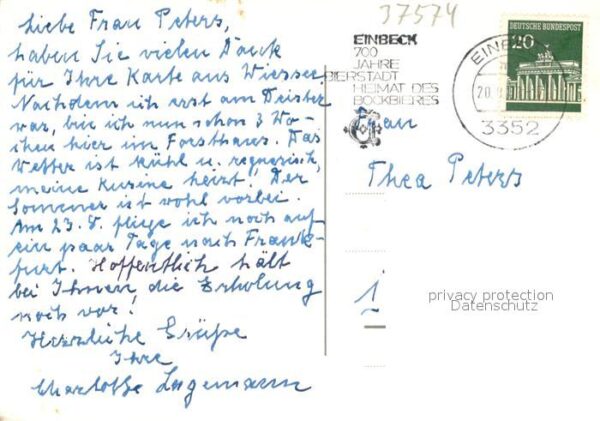 Liebe Frau Peters,
haben Sie vielen Dank
für Ihre Karte aus Wiessee.
Nachdem ich erst am Deister
war, bin ich nun schon 3 Wo-
chen hier im Forsthaus. Das
Wetter ist kühl u. regnerisch,
meine Kusine heizt! Der
Sommer ist wohl vorbei.
Am 23. 8. fliege ich noch auf
ein paar Tage nach Frank-
furt. Hoffentlich hält
bei Ihnen die Erholung
noch vor!
Herzliche Grüße
Ihre
Charlotte
37574
EINBECK
700
JAHRE
BIERSTADT
HEIMAT DES
BOCKBIERES
EINBECK
20
3352
DEUTSCHE BUNDESPOST
20
Frau
Thea Peters
i
privacy protection
Datenschutz